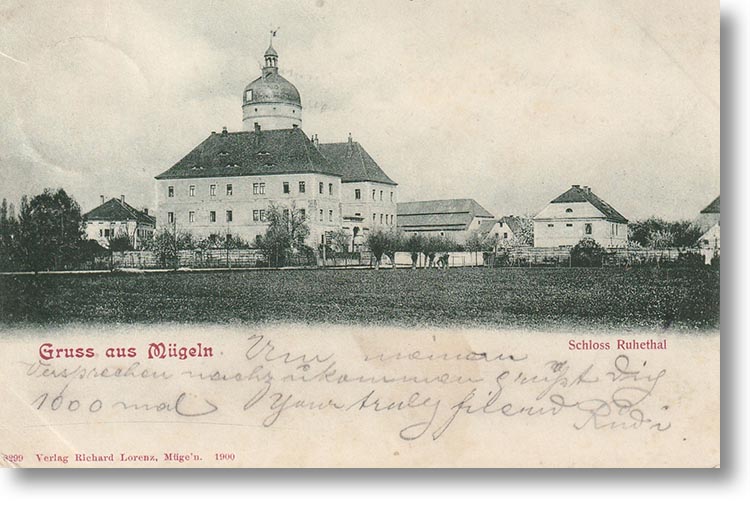 Gruss aus Mügeln
Schloss Ruhethal
Um meinen
Versprechen nachzukommen grüßt Dig
1000 mal Your truly friend Rudi
3299 Verlag Richard Lorenz, Müge'n. 1900